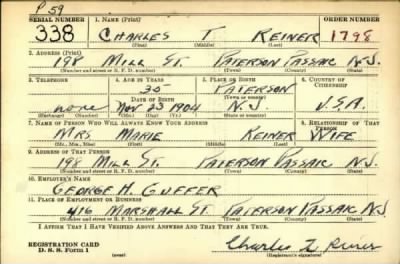 P 59
SERIAL NUMBER 1. NAME (Print) ORDER NUMBER
338 CHARLES T REINER 1798
(First) (Middle) (Last)
2. ADDRESS (Print)
198 MILL ST. PATERSON PASSAIC N.J.
(Number and street or R. F. D. number) (Town) (County) (State)
3. TELEPHONE 4. AGE IN YEARS 5. PLACE OF BIRTH 6. COUNTRY OF CITIZENSHIP
35 PATERSON
DATE OF BIRTH (Town or county)
none Nov 23 1904 N.J. U.S.A.
(Exchange) (Number) (Mo.) (Day) (Yr.) (State or country)
7. NAME OF PERSON WHO WILL ALWAYS KNOW YOUR ADDRESS 8. RELATIONSHIP OF THAT PERSON
MRS MARIE REINER WIFE
(Mr., Mrs., Miss) (First) (Middle) (Last)
9. ADDRESS OF THAT PERSON
198 MILL ST. PATERSON PASSAIC N.J.
(Number and street or R. F. D. number) (Town) (County) (State)
10. EMPLOYER'S NAME
GEORGE H. GUFFER
11. PLACE OF EMPLOYMENT OR BUSINESS
416 MARSHALL ST. PATERSON PASSAIC N.J.
(Number and street or R. F. D. number) (Town) (County) (State)
I AFFIRM THAT I HAVE VERIFIED ABOVE ANSWERS AND THAT THEY ARE TRUE.
REGISTRATION CARD
D. S. S. Form 1 (over) Charles T. Reiner
(Registrant's signature)